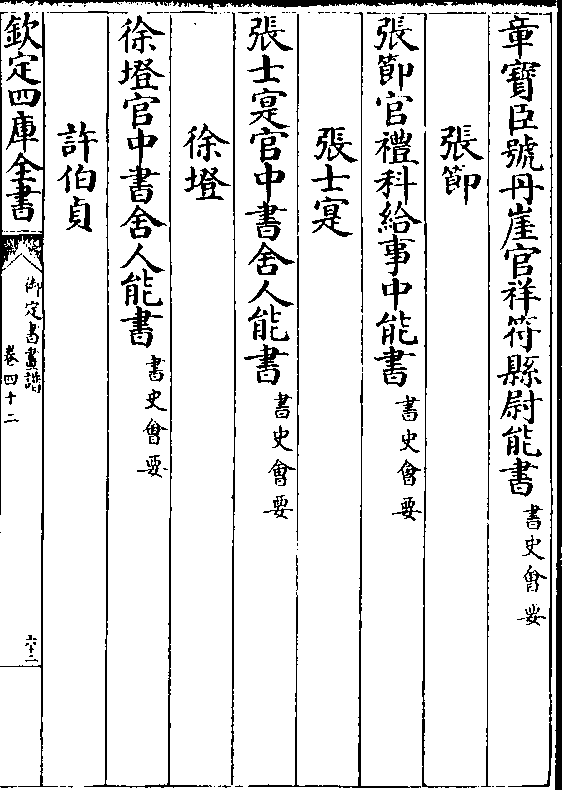 章寶臣號丹崖官祥符縣尉能書書史會要
張節
張節官禮科給事中能書書史會要
張士寔
張士寔官中書舍人能書書史會要
徐墱
徐墱官中書舍人能書書史會要
許伯貞
欽定四庫全書
御定書畫譜
卷四十二
六十二